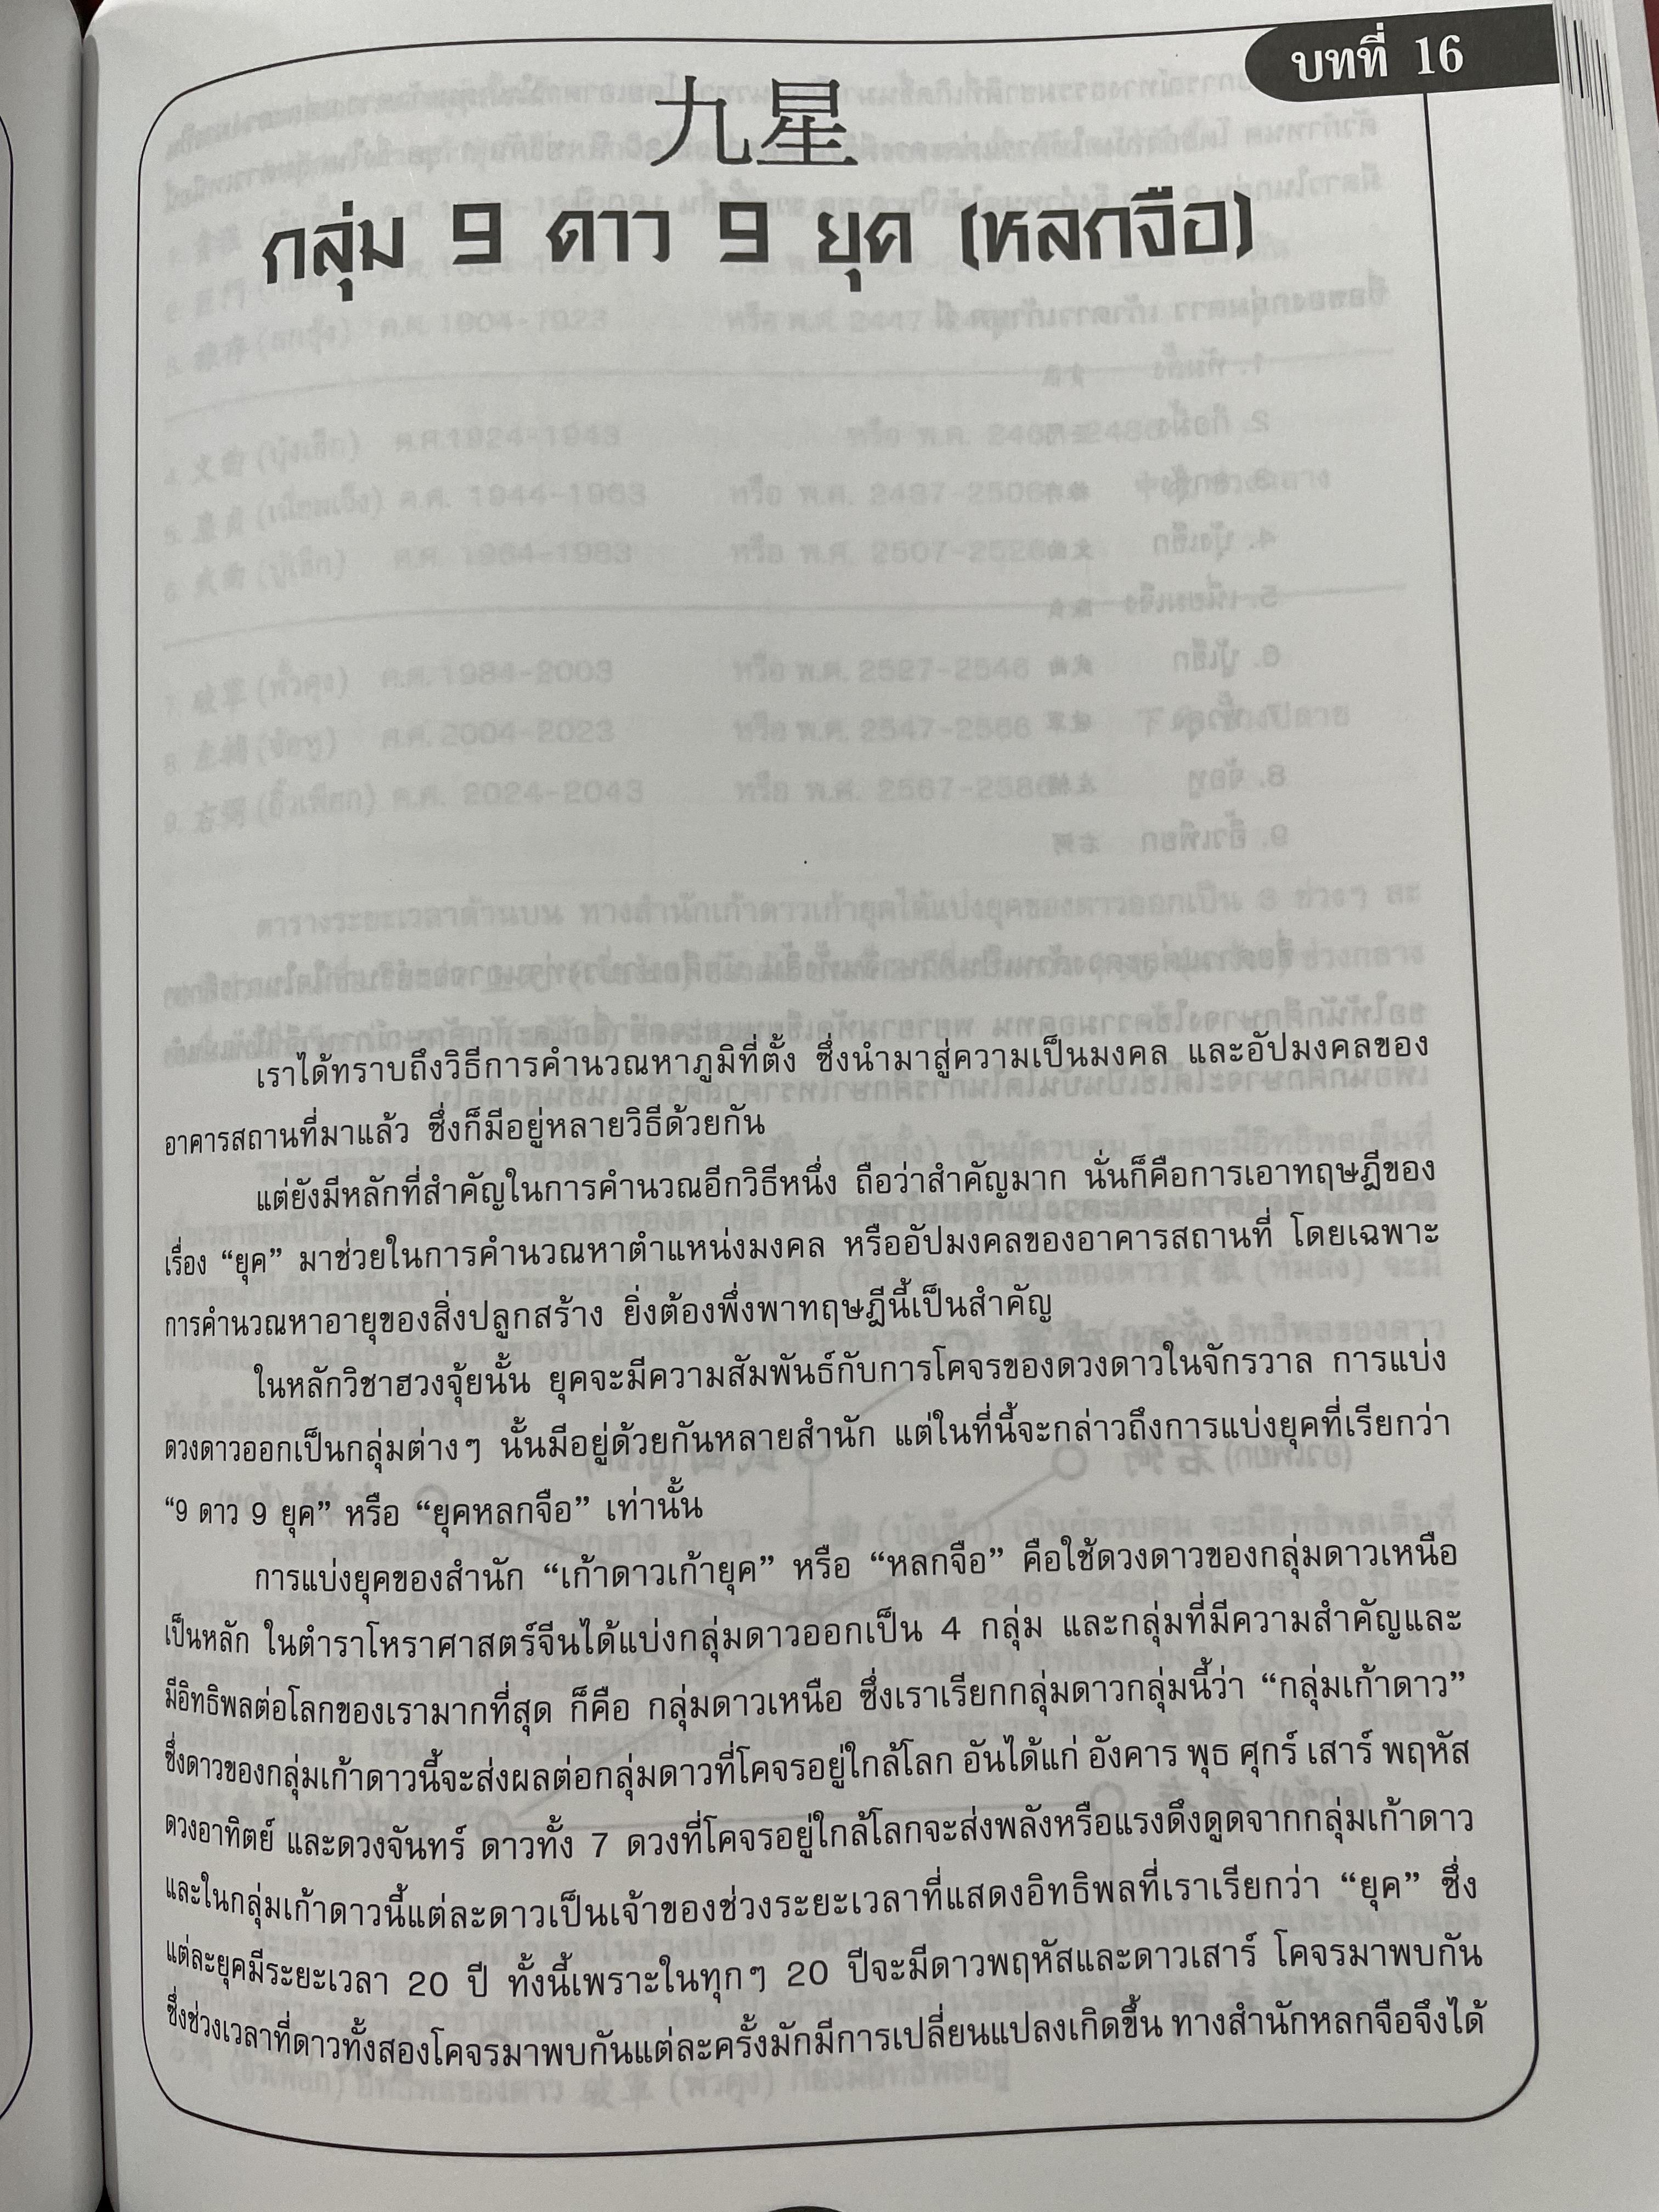 บทที่ 16
九星
กลุ่ม 9 ดาว 9 ยุค (หลกจือ)
เราได้ทราบถึงวิธีการคำนวณหาภูมิที่ตั้ง ซึ่งนำมาสู่ความเป็นมงคล และอัปมงคลของ
อาคารสถานที่มาแล้ว ซึ่งก็มีอยู่หลายวิธีด้วยกัน
แต่ยังมีหลักที่สำคัญในการคำนวณอีกวิธีหนึ่ง ถือว่าสำคัญมาก นั่นก็คือการเอาทฤษฎีของ
เรื่อง “ยุค” มาช่วยในการคำนวณหาตำแหน่งมงคล หรืออัปมงคลของอาคารสถานที่ โดยเฉพาะ
การคำนวณหาอายุของสิ่งปลูกสร้าง ยิ่งต้องพึ่งพาทฤษฎีนี้เป็นสำคัญ
ในหลักวิชาฮวงจุ้ยนั้น ยุคจะมีความสัมพันธ์กับการโคจรของดวงดาวในจักรวาล การแบ่ง
ดวงดาวออกเป็นกลุ่มต่างๆ นั้นมีอยู่ด้วยกันหลายสำนัก แต่ในที่นี้จะกล่าวถึงการแบ่งยุคที่เรียกว่า
“9 ดาว 9 ยุค” หรือ “ยุคหลกจือ” เท่านั้น
การแบ่งยุคของสำนัก “เก้าดาวเก้ายุค” หรือ “หลกจือ” คือใช้ดวงดาวของกลุ่มดาวเหนือ
เป็นหลัก ในตำราโหราศาสตร์จีนได้แบ่งกลุ่มดาวออกเป็น 4 กลุ่ม และกลุ่มที่มีความสำคัญและ
มีอิทธิพลต่อโลกของเรามากที่สุด ก็คือ กลุ่มดาวเหนือ ซึ่งเราเรียกกลุ่มดาวกลุ่มนี้ว่า “กลุ่มเก้าดาว”
ซึ่งดาวของกลุ่มเก้าดาวนี้จะส่งผลต่อกลุ่มดาวที่โคจรอยู่ใกล้โลก อันได้แก่ อังคาร พุธ ศุกร์ เสาร์ พฤหัส
ดวงอาทิตย์ และดวงจันทร์ ดาวทั้ง 7 ดวงที่โคจรอยู่ใกล้โลกจะส่งพลังหรือแรงดึงดูดจากกลุ่มเก้าดาว
และในกลุ่มเก้าดาวนี้แต่ละดาวเป็นเจ้าของช่วงระยะเวลาที่แสดงอิทธิพลที่เราเรียกว่า “ยุค” ซึ่ง
แต่ละยุคมีระยะเวลา 20 ปี ทั้งนี้เพราะในทุกๆ 20 ปีจะมีดาวพฤหัสและดาวเสาร์ โคจรมาพบกัน
ซึ่งช่วงเวลาที่ดาวทั้งสองโคจรมาพบกันแต่ละครั้งมักมีการเปลี่ยนแปลงเกิดขึ้น ทางสำนักหลกจือจึงได้